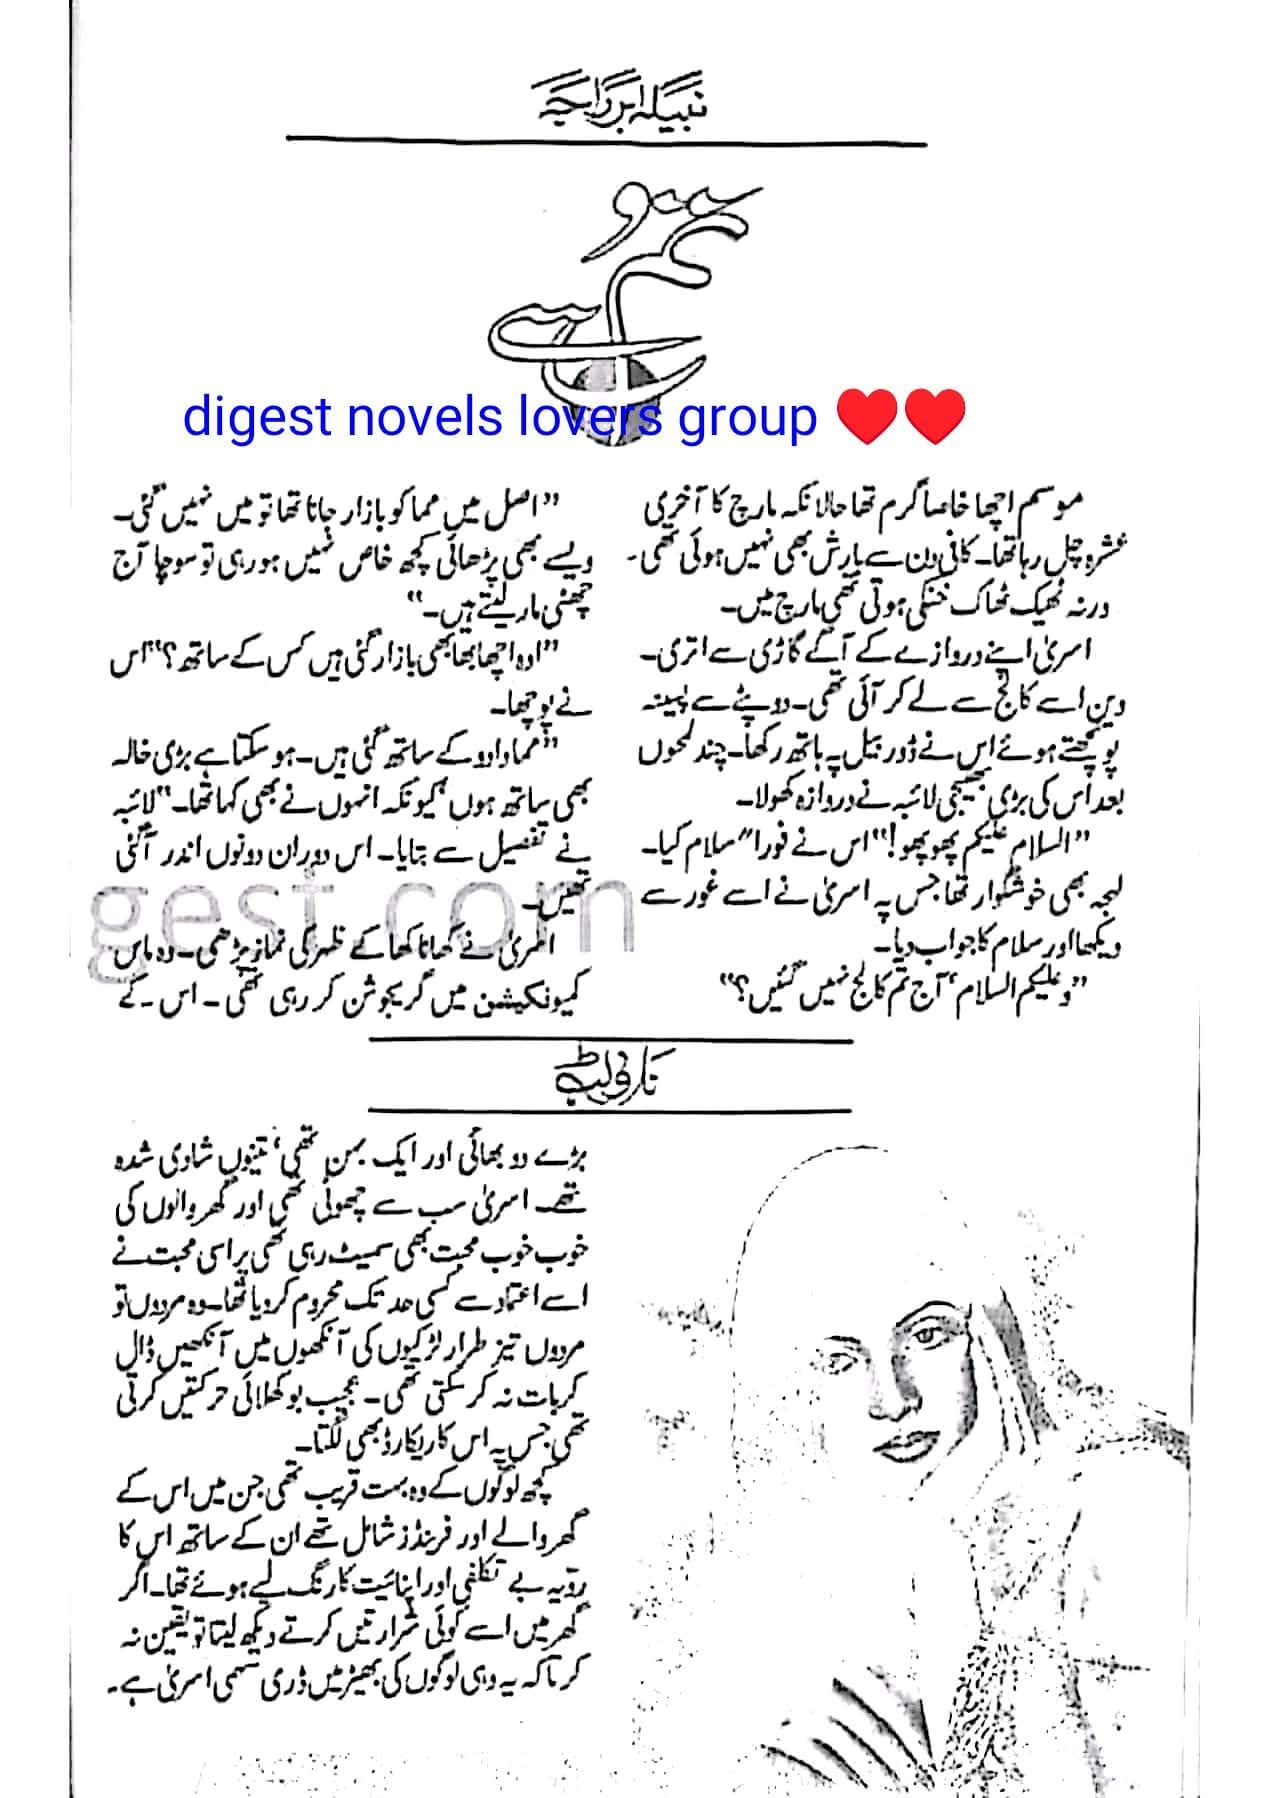 نبیلہ ابرراجہ
digest novels lovers group ❤️❤️
موسم اچھا خاصا گرم تھا حالانکہ مارچ کا آخری
عشرہ چل رہا تھا۔ کافی دن سے بارش بھی نہیں ہوئی تھی۔
ورنہ ٹھیک ٹھاک خنکی ہوتی تھی مارچ میں۔
اسریٰ اپنے دروازے کے آگے گاڑی سے اتری۔
وین اسے کالج سے لے کر آئی تھی۔ دوپٹے سے پسینہ
پونچھتے ہوئے اس نے ڈور بیل پہ ہاتھ رکھا۔ چند لمحوں
بعد اس کی بڑی بھتیجی لائبہ نے دروازہ کھولا۔
”السلام علیکم پھوپھو!“ اس نے فورا" سلام کیا۔
لہجہ بھی خوشگوار تھا جس پہ اسریٰ نے اسے غور سے
دیکھا اور سلام کا جواب دیا۔
”وعلیکم السلام‘ آج تم کالج نہیں گئیں؟“
”اصل میں مما کو بازار جانا تھا تو میں نہیں گئی۔
ویسے بھی پڑھائی کچھ خاص نہیں ہو رہی تو سوچا آج
چھٹی مار لیتے ہیں۔“
”اوہ اچھا بھابھی بازار گئی ہیں کس کے ساتھ؟“ اس
نے پوچھا۔
”مما دادو کے ساتھ گئی ہیں۔ ہو سکتا ہے بڑی خالہ
بھی ساتھ ہوں‘ کیونکہ انہوں نے بھی کہا تھا۔“ لائبہ
نے تفصیل سے بتایا۔ اس دوران دونوں اندر آ گئی
تھیں۔
gest.com
اسریٰ نے کھانا کھا کے ظہر کی نماز پڑھی۔ وہ ماس
کمیونکیشن میں گریجوشن کر رہی تھی۔ اس کے
ناولٹ
بڑے دو بھائی اور ایک بہن تھی‘ تینوں شادی شدہ
تھے۔ اسریٰ سب سے چھوٹی تھی اور گھر والوں کی
خوب خوب محبت بھی سمیٹ رہی تھی پر اسی محبت نے
اسے اعتماد سے کسی حد تک محروم کر دیا تھا۔ وہ مردوں تو
مردوں تیز طرار لڑکیوں کی آنکھوں میں آنکھیں ڈال
کر بات نہ کر سکتی تھی۔ عجیب بوکھلائی حرکتیں کرتی
تھی جس پہ اس کا ریکارڈ بھی لگتا۔
کچھ لوگوں کے وہ بہت قریب تھی جن میں اس کے
گھر والے اور فرینڈز شامل تھے ان کے ساتھ اس کا
رویہ بے تکلفی اور اپنائیت کا رنگ لیے ہوئے تھا۔ اگر
گھر میں اسے کوئی شرارتیں کرتے دیکھ لیتا تو یقین نہ
کرتا کہ یہ وہی لوگوں کی بھیڑ میں ڈری سہمی اسریٰ ہے۔